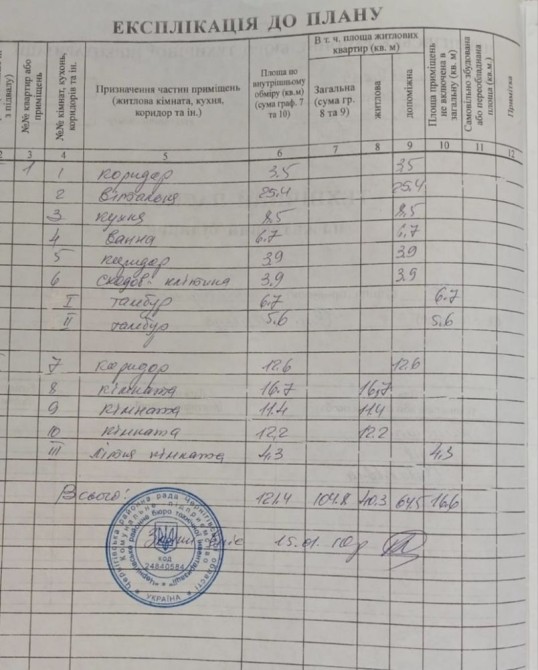 ЕКСПЛІКАЦІЯ ДО ПЛАНУ
з підвалу)
№№ квартир або приміщень
№№ кімнат, кухонь, коридорів та ін.
Призначення частин приміщень (житлова кімната, кухня, коридор та ін.)
Площа по внутрішньому обміру (кв.м) (сума граф. 7 та 10)
В т. ч. площа житлових квартир (кв. м)
Загальна (сума гр. 8 та 9)
житлова
допоміжна
Площа приміщень не включена в загальну (кв. м)
Самовільно збудована або переобладнана площа (кв.м)
Примітка
2 3 4 5 6 7 8 9 10 11 12
1 1 коридор 3.5 3.5
2 Вітальня 25.4 25.4
3 кухня 8,5 8,5
4 Ванна 6.7 6.7
5 коридор 3.9 3.9
6 сходов. клітина 3.9 3.9
I тамбур 6.7 6.7
II тамбур 5.6 5.6
7 коридор 12.6 12.6
8 кімната 16.7 16,7
9 кімната 11.4 11.4
10 кімната 12,2 12.2
III літня кімната 4,3 4,3
Всього: 121.4 104.8 40.3 64,5 16.6
15.01.10р
Чернігівська районна рада Чернігівської області
код
24840584
УКРАЇНА